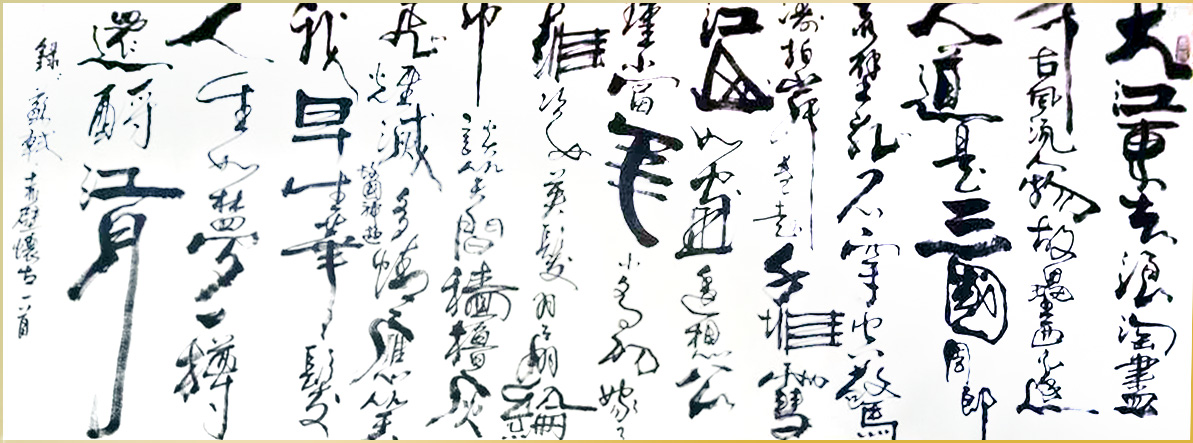 大江東去浪淘盡
千古風流人物故壘西邊
人道是三國周郎
赤壁亂石穿空驚
濤拍岸捲起千堆雪
江山如畫遙想公
瑾當年小喬初嫁了
雄姿英發羽扇綸
巾談笑間檣櫓灰
飛煙滅故國神遊多情應笑
我早生華髮
人生如夢一樽
還酹江月
錄蘇軾赤壁懷古一首